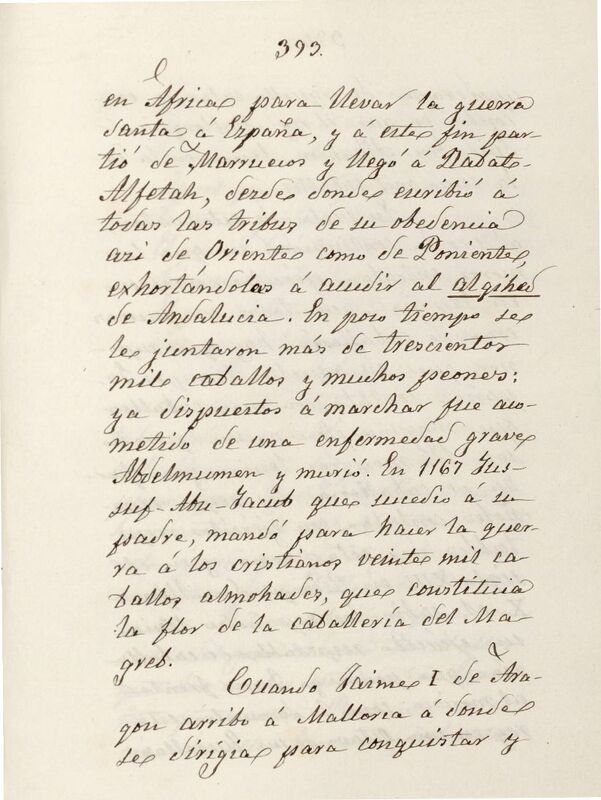 393.
en Africa para llevar la guerra
santa á España, y á este fin par-
tió de Marruecos y llegó á Rabat-
Alfetah, desde donde escribió á
todas las tribus de su obedencia
asi de Oriente como de Poniente,
exhortándolas á acudir al algihed
de Andalucia. En poco tiempo se
le juntaron más de trescientos
mil caballos y muchos peones;
ya dispuestos á marchar fue aco-
metido de una enfermedad grave
Abdelmumen y murió. En 1167 Jus-
suf-Abu-Jacub que sucedio á su
padre, mandó para hacer la guer-
ra á los cristianos veinte mil ca
ballos almohades, que constituia
la flor de la caballería del Ma-
greb.
Cuando Jaime I de Ara-
gon arribo á Mallorca á donde
se dirigia para conquistar y